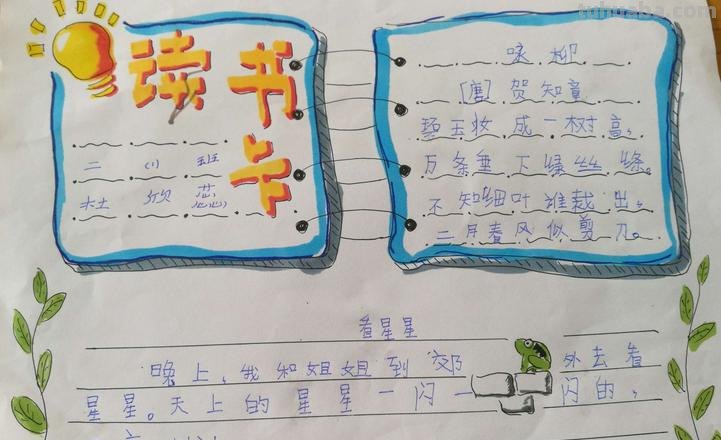 读书卡
二 (1) 班
杜 欣 蕊
咏柳
[唐] 贺知章
碧玉妆成一树高,
万条垂下绿丝绦。
不知细叶谁裁出,
二月春风似剪刀。
看星星
晚上,我和姐姐到郊外去看
星星。天上的星星一闪一闪的,
tuhuaba.com